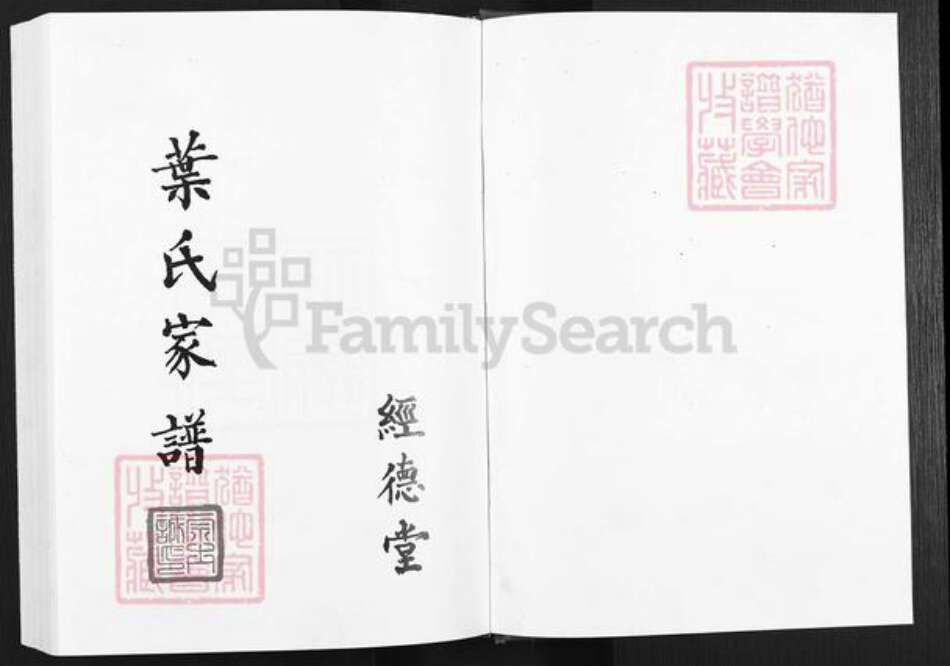 猶他家
譜學會
收藏
經德堂
葉氏家譜
猶他家
譜學會
收藏
FamilySearch